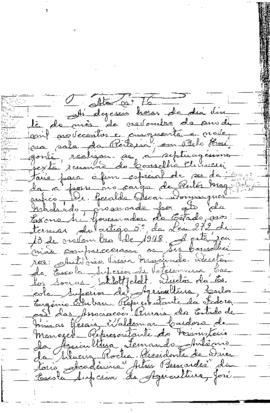 Ata nº 76
Às dezesseis horas do dia vin-
te do mês de novembro do ano de
mil novecentos e cinquenta e nove,
na sala da Reitoria, em Belo Hori-
zonte, realizou-se a septuagésima
sexta reunião do Conselho Universi-
tário para o fim especial de se da-
da a posse no cargo de Reitor Mag-
nífico Dr. Geraldo Oscar Domingues
Machado, nomeado por ato do
Exmo. Sr. Governador do Estado, nos
termos do artigo da Lei 272 de
13 de novembro de 1948. A esta reu-
nião compareceram os srs. Conselhei-
ros: Antônio Vieira Machado, Diretor
da Escola Superior de Veterinária,
Diretor da Es-
cola Superior de Agricultura,
Eugênio Representante da Federa-
ção das Associações Rurais do Estado de
Minas Gerais, Waldemar Cardoso de
Representante do Ministério
da Agricultura, Fernando Antônio
da Silveira Rocha, Presidente do Dire-
tório Acadêmico "Artur Bernardes" da
Escola Superior de Agricultura, José